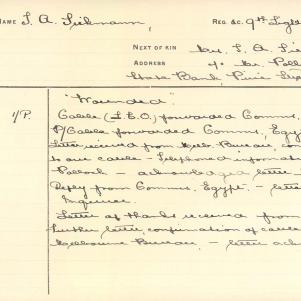 NAME S. A. Siekmann. REG &C. 9th Light
NEXT OF KIN Mr. S. A. Si
ADDRESS c/- Mr. Poll
State Bank, Pirie St
1/P. "Wounded"
Cable (S.E.O.) forwarded Comms.
P/Cable forwarded Comms, Egy
Letter received from Melb. Bureau, con
to our cable - Telephoned information
Pollock - acknowledged letter
Reply from Commrs, Egypt. - lette
Inquirer.
Letter of thanks received from
Further letter, confirmation of cable
Melbourne Bureau. - letter ack